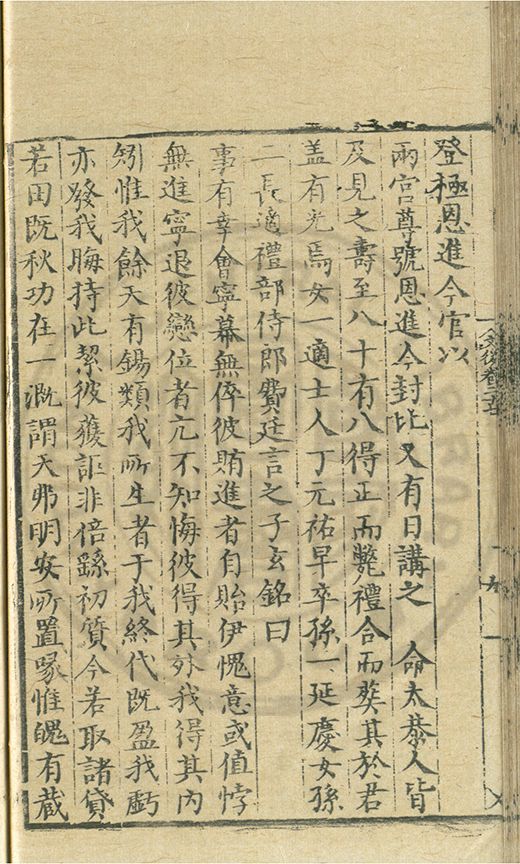 登極恩進今官以
兩宮尊號恩進今封此又有日講之 命太恭人皆
及見之壽至八十有八得正而斃禮合而葬其於君
盖有光焉女一適士人丁元祐早卒孫一延慶女孫
二長適禮部侍郎費廷言之子玄銘曰
事有幸會寧幕無倅彼賄進者自貽伊愧意或值悖
無進寧退彼戀位者亢不知悔彼得其外我得其内
矧惟我餘天有錫類我所生者于我終代既盈我虧
亦發我晦持此絜彼獲詎非倍繇初質今若取諸貸
若田既秋功在一溉謂天弗明安所置喙惟魄有藏